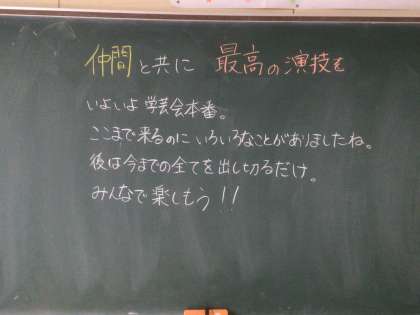 仲間と共に 最高の演技を
いよいよ学芸会本番。
ここまで来るのにいろいろなことがありましたね。
後は今までの全てを出し切るだけ。
みんなで楽しもう!!